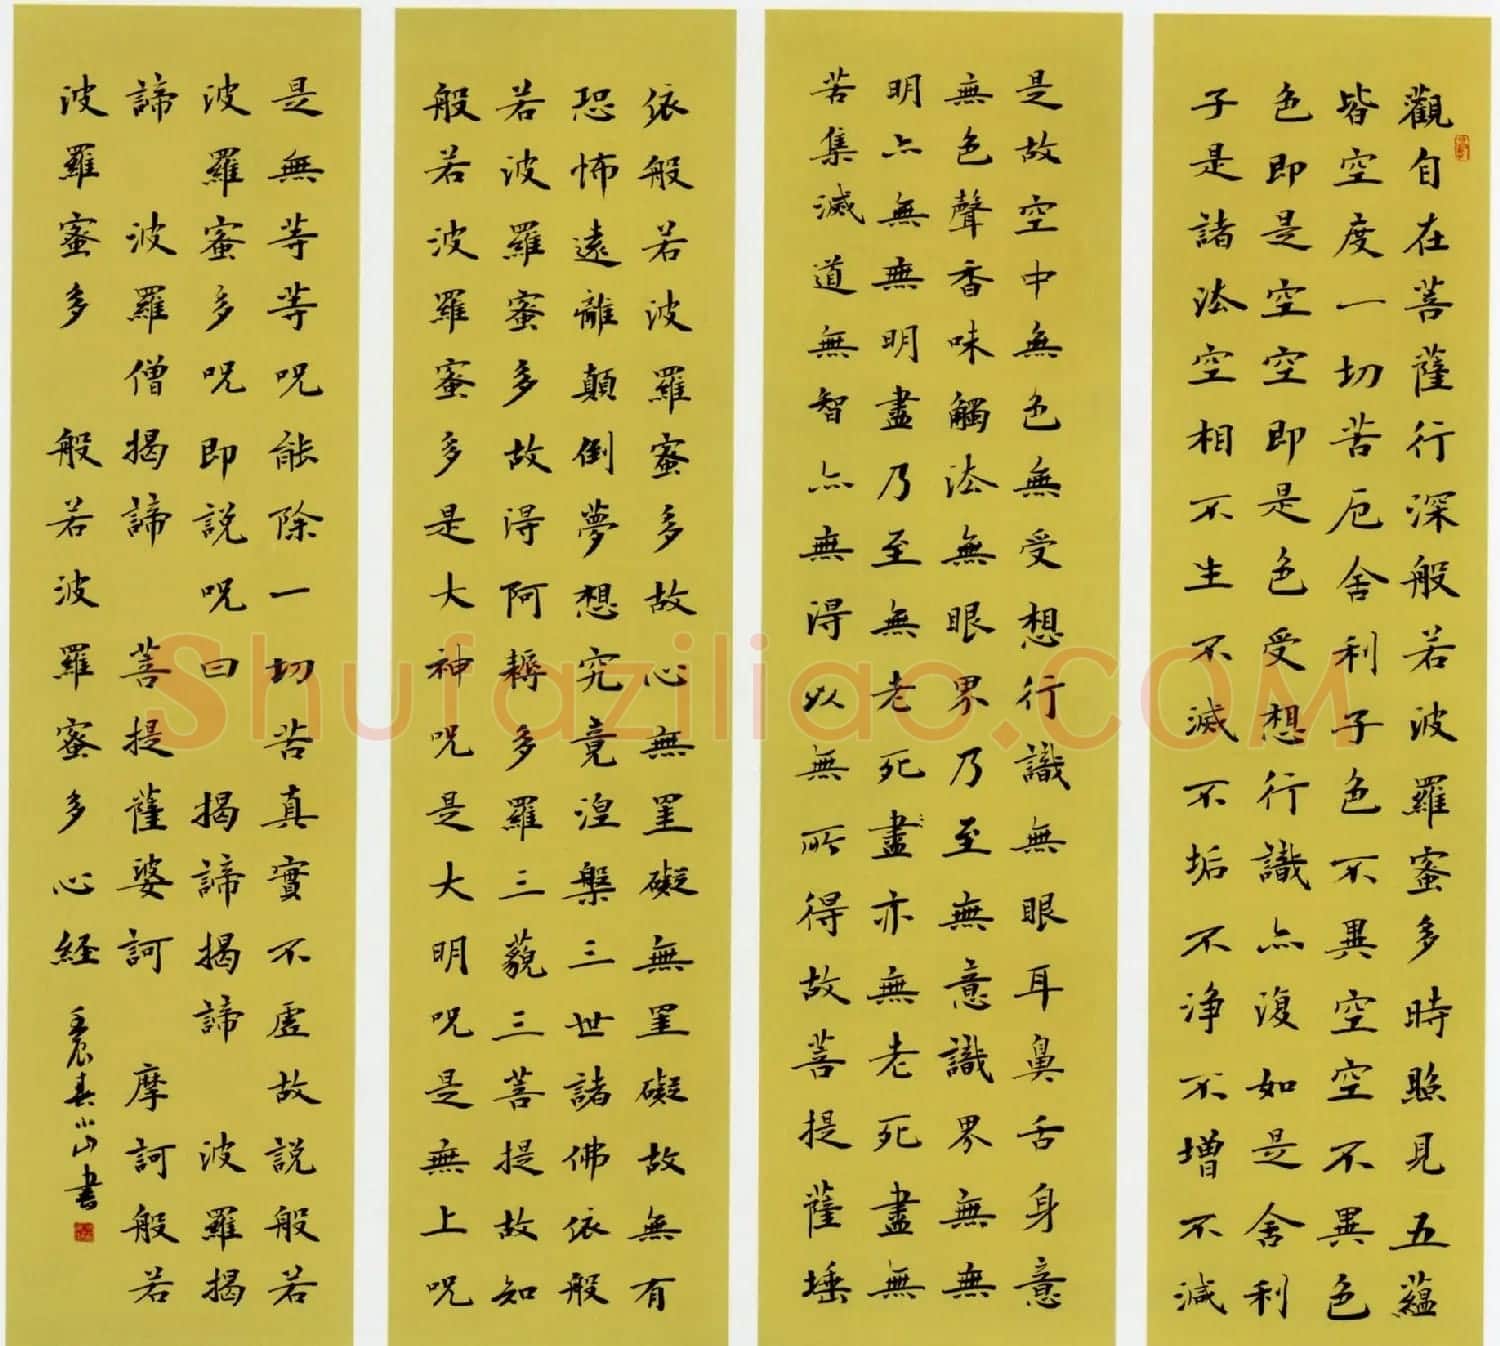 觀自在菩薩行深般若波羅蜜多時照見五蘊
皆空度一切苦厄舍利子色不異空空不異色
色即是空空即是色受想行識亦復如是舍利
子是諸法空相不生不滅不垢不淨不增不減
是故空中無色無受想行識無眼耳鼻舌身意
無色聲香味觸法無眼界乃至無意識界無無
明亦無無明盡乃至無老死盡亦無老死盡無
苦集滅道無智亦無得以無所得故菩提薩埵
依般若波羅蜜多故心無罣礙無罣礙故無有
恐怖遠離顛倒夢想究竟涅槃三世諸佛依般
若波羅蜜多故得阿耨多羅三藐三菩提故知
般若波羅蜜多是大神呪是大明呪是無上呪
是無等等呪能除一切苦真實不虛故説般若
波羅蜜多呪即説呪曰 揭諦揭諦 波羅揭
諦 波羅僧揭諦 菩提薩婆訶 摩訶般若
波羅蜜多 般若波羅蜜多心経
壬辰春小山書
Shufaziliao.COM